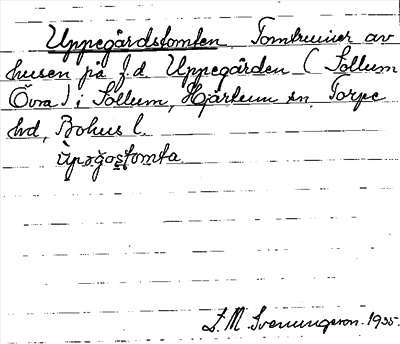 Uppegårdstomten Tomtruiner av
husen på f.d. Uppegården (Sollum
Övra) i Sollum, Hjärtum sn, Torpe
hd, Bohus l.
S. M. Svenungsson. 1935.